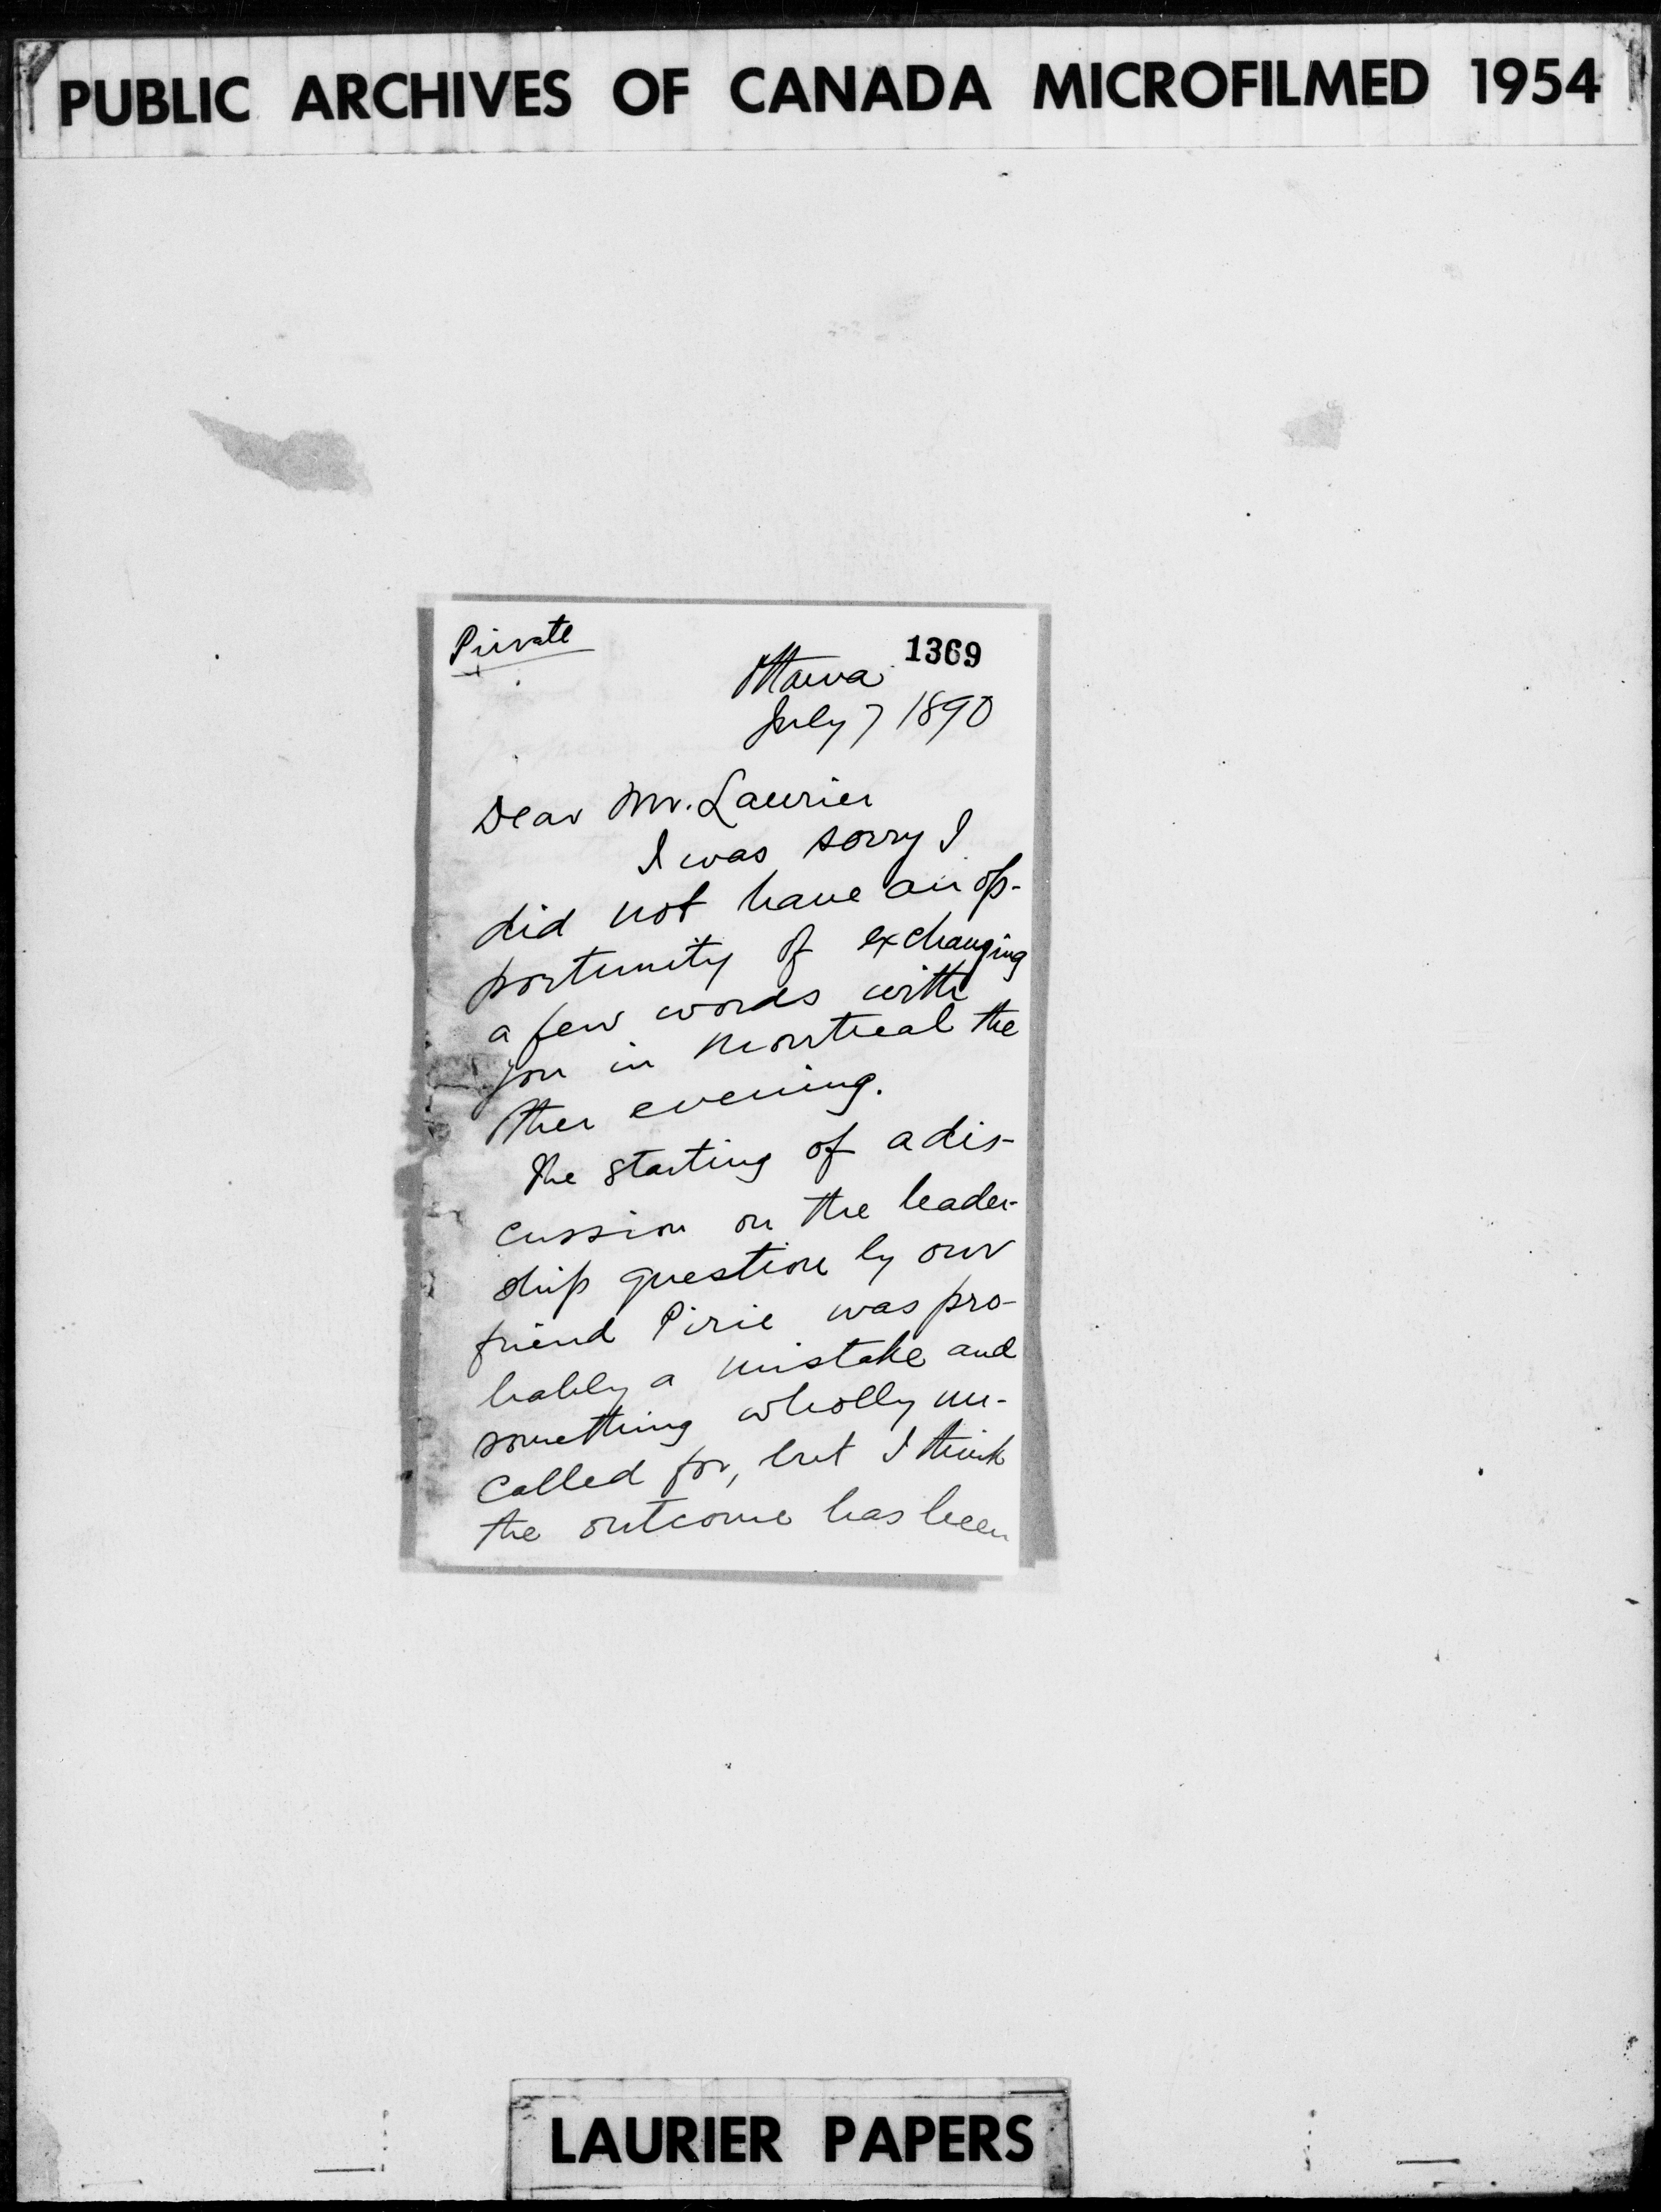 PUBLIC ARCHIVES OF CANADA MICROFILMED 1954
Private
1369
Ottawa
July 7 1890
Dear Mr. Laurier
I was sorry I
did not have an op-
portunity of exchanging
a few words with
you in Montreal the
other evening.
The starting of a dis-
cussion on the leader-
ship question by our
friend Pirie was pro-
bably a mistake and
something wholly un-
called for, but I think
the outcome has been
LAURIER PAPERS